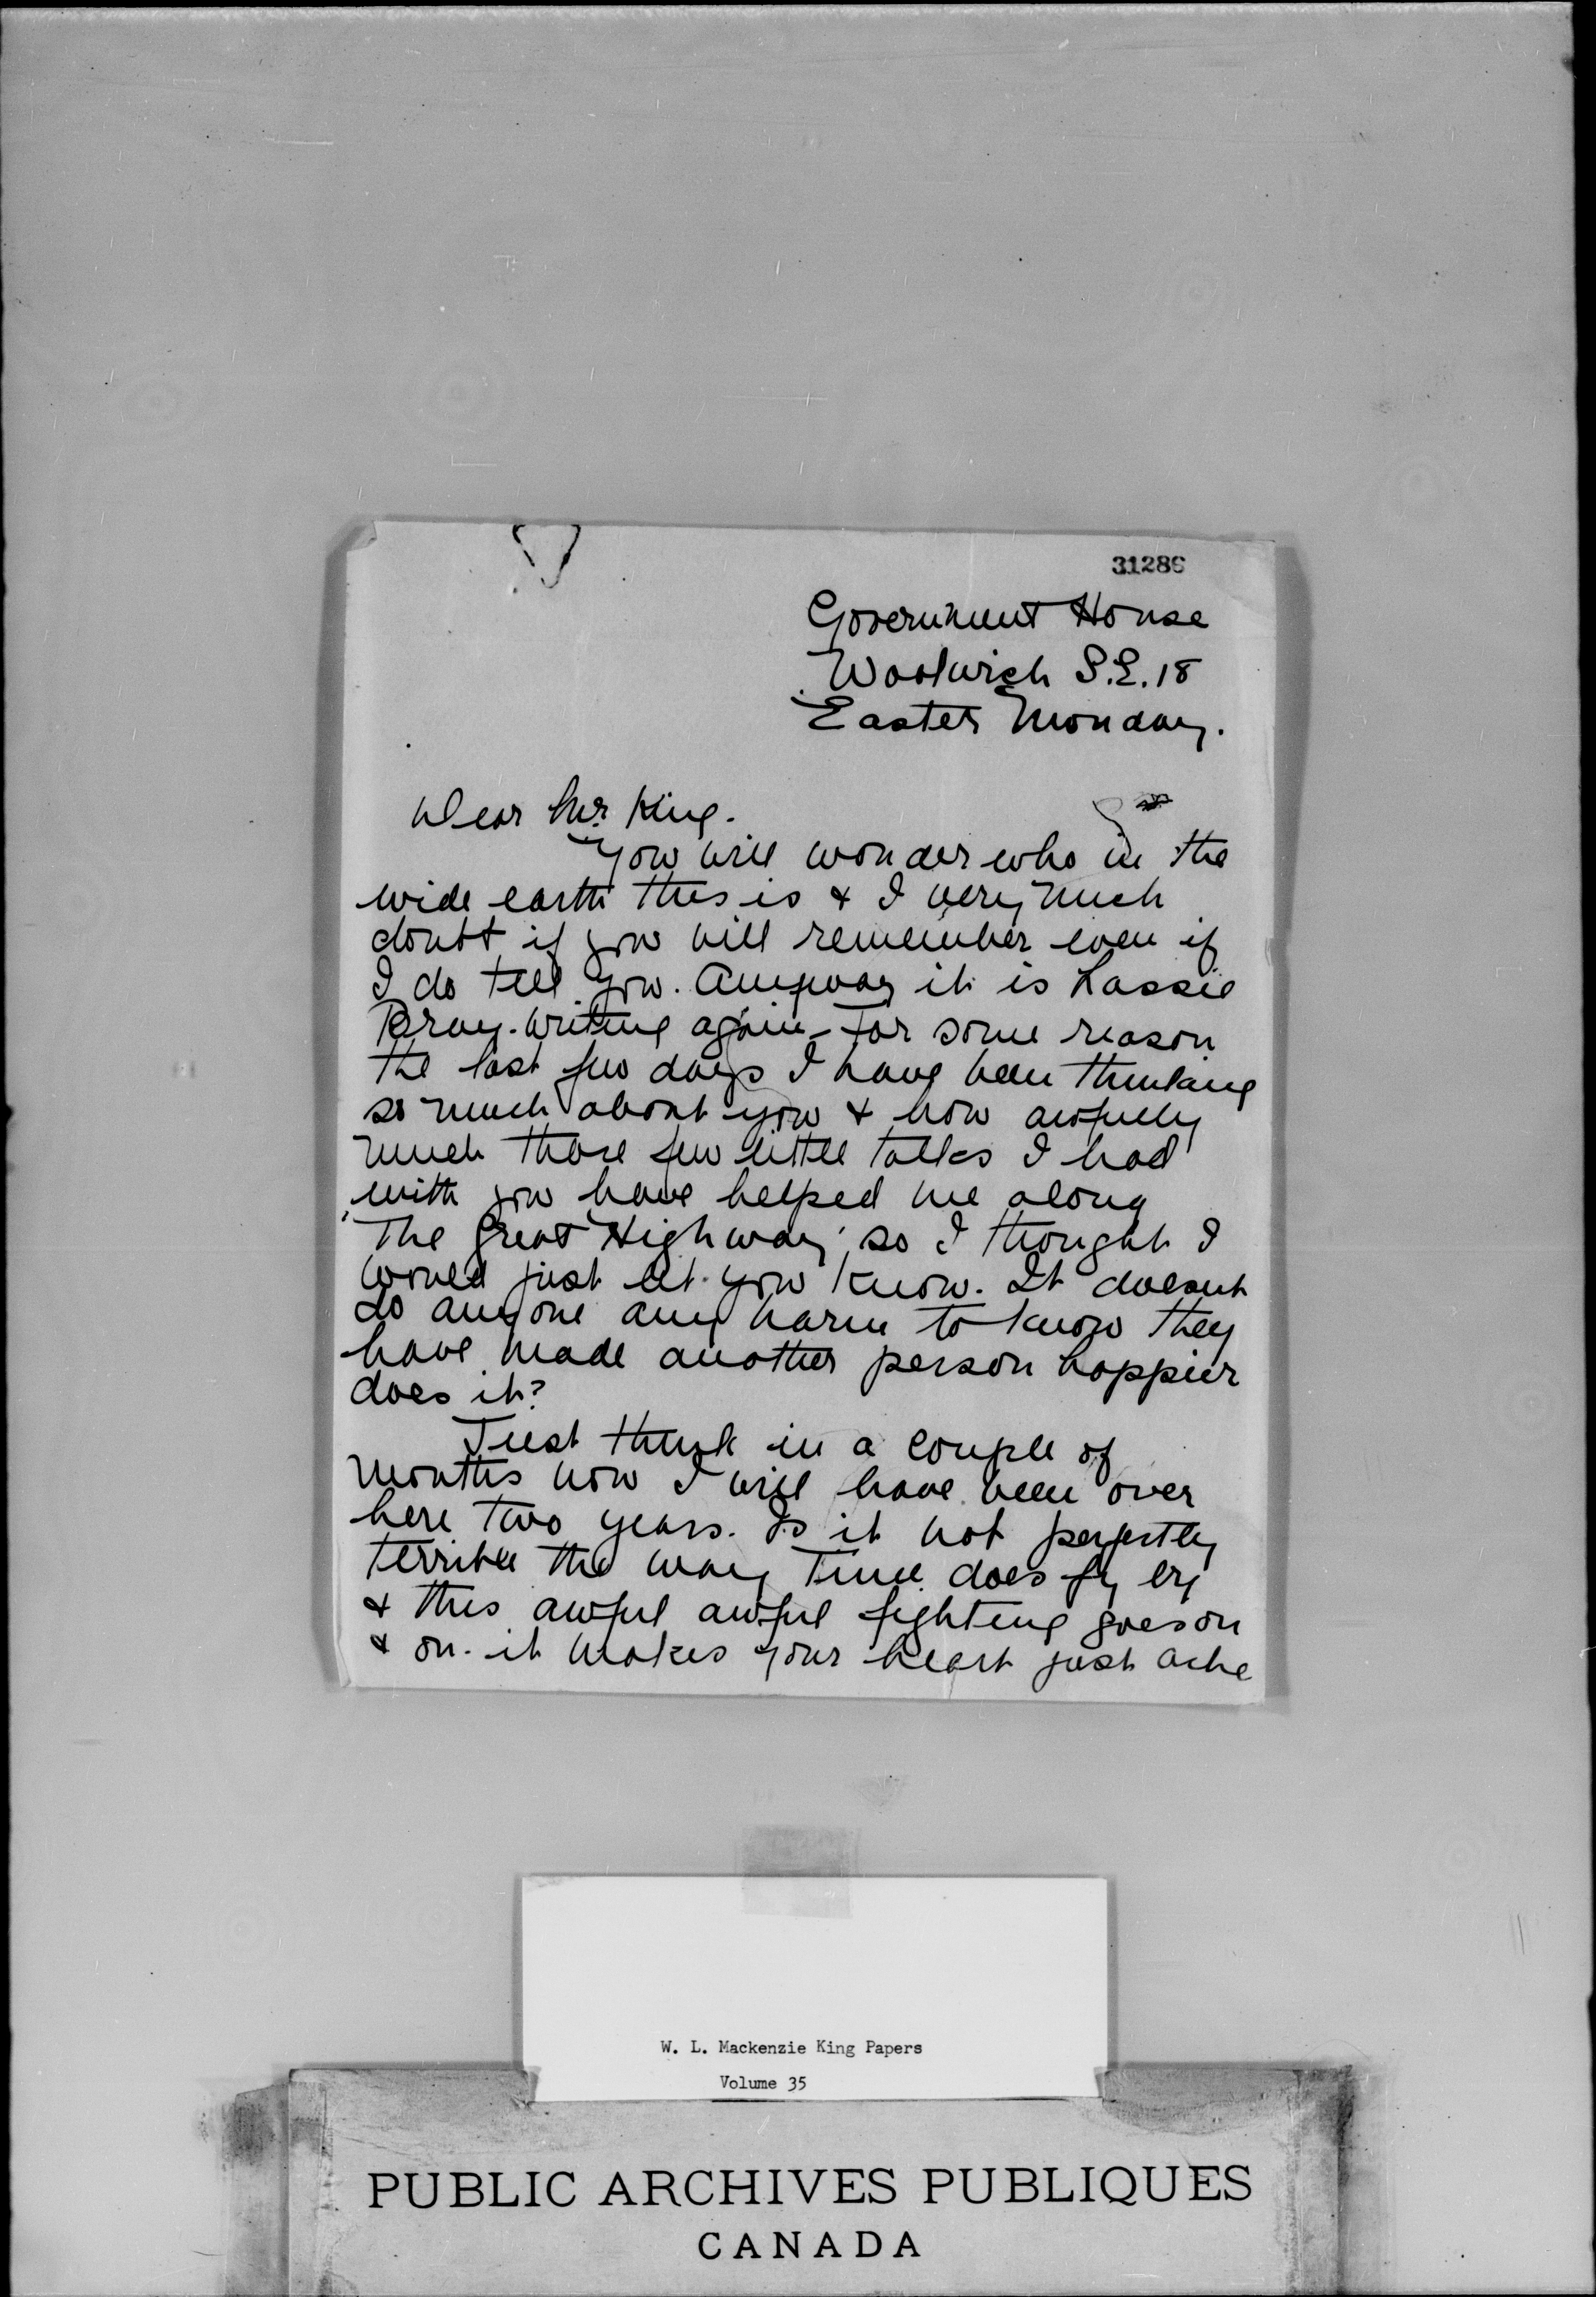 31286
Government House
Woolwich S.E. 18
Easter Monday.
Dear Mr. King.
You will wonder who in the
wide earth this is & I very much
doubt if you will remember even if
I do tell you. Anyway it is Lassie
Bray. writing again - For some reason
the last few days I have been thinking
so much about you & how awfully
much those few little talks I had
with you have helped me along
'The Great Highway' so I thought I
would just let you know. It doesnt
do anyone any harm to know they
have made another person happier
does it?
Just think in a couple of
months now I will have been over
here two years. Is it not perfectly
terrible the way Time does fly by
& this awful awful fighting goes on
& on - it makes your heart just ache
W. L. Mackenzie King Papers
Volume 35
PUBLIC ARCHIVES PUBLIQUES
CANADA